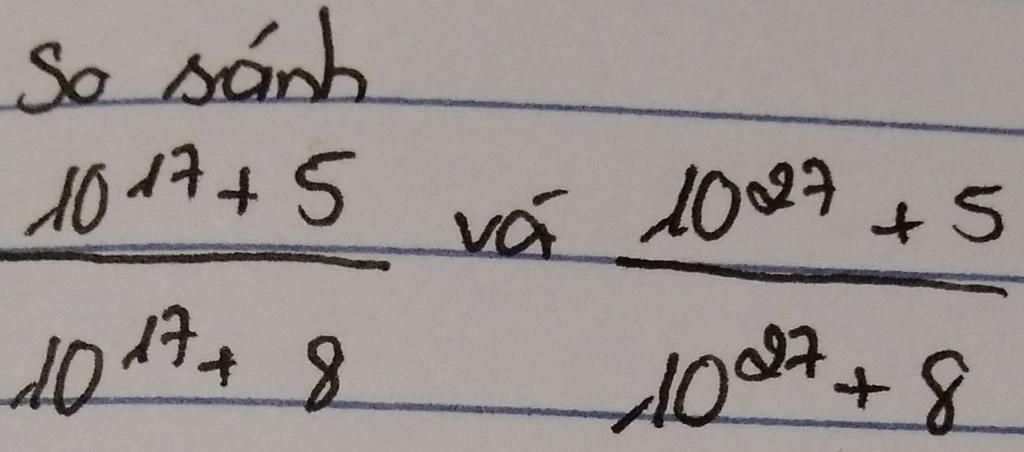 So sánh
10^17 + 5 / 10^17 + 8 và 10^27 + 5 / 10^27 + 8